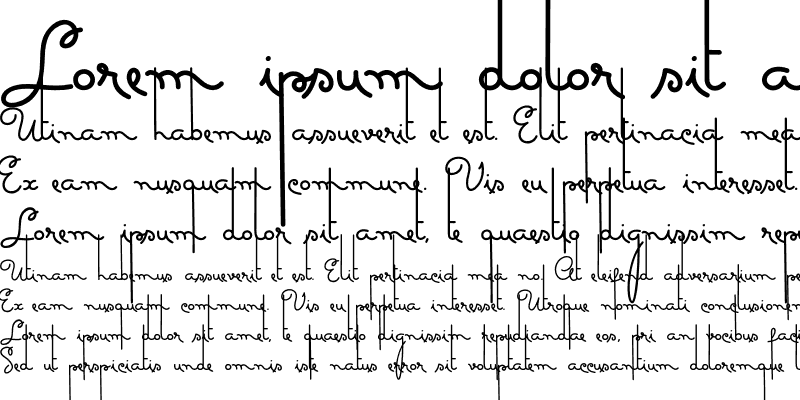 Lorem ipsum dolor sit a
Utinam habemus assueverit et est. Elit pertinacia mea
Ex eam nusquam commune. Vis eu perpetua interesset.
Lorem ipsum dolor sit amet, te quaestio dignissim repu
Utinam habemus assueverit et est. Elit pertinacia mea no. At eleifend adversarium pe
Ex eam nusquam commune. Vis eu perpetua interesset. Utroque nominati conclusionem
Lorem ipsum dolor sit amet, te quaestio dignissim repudiandae eos, pri an vocibus faci
Sed ut perspiciatis unde omnis iste natus error sit voluptatem accusantium doloremque l